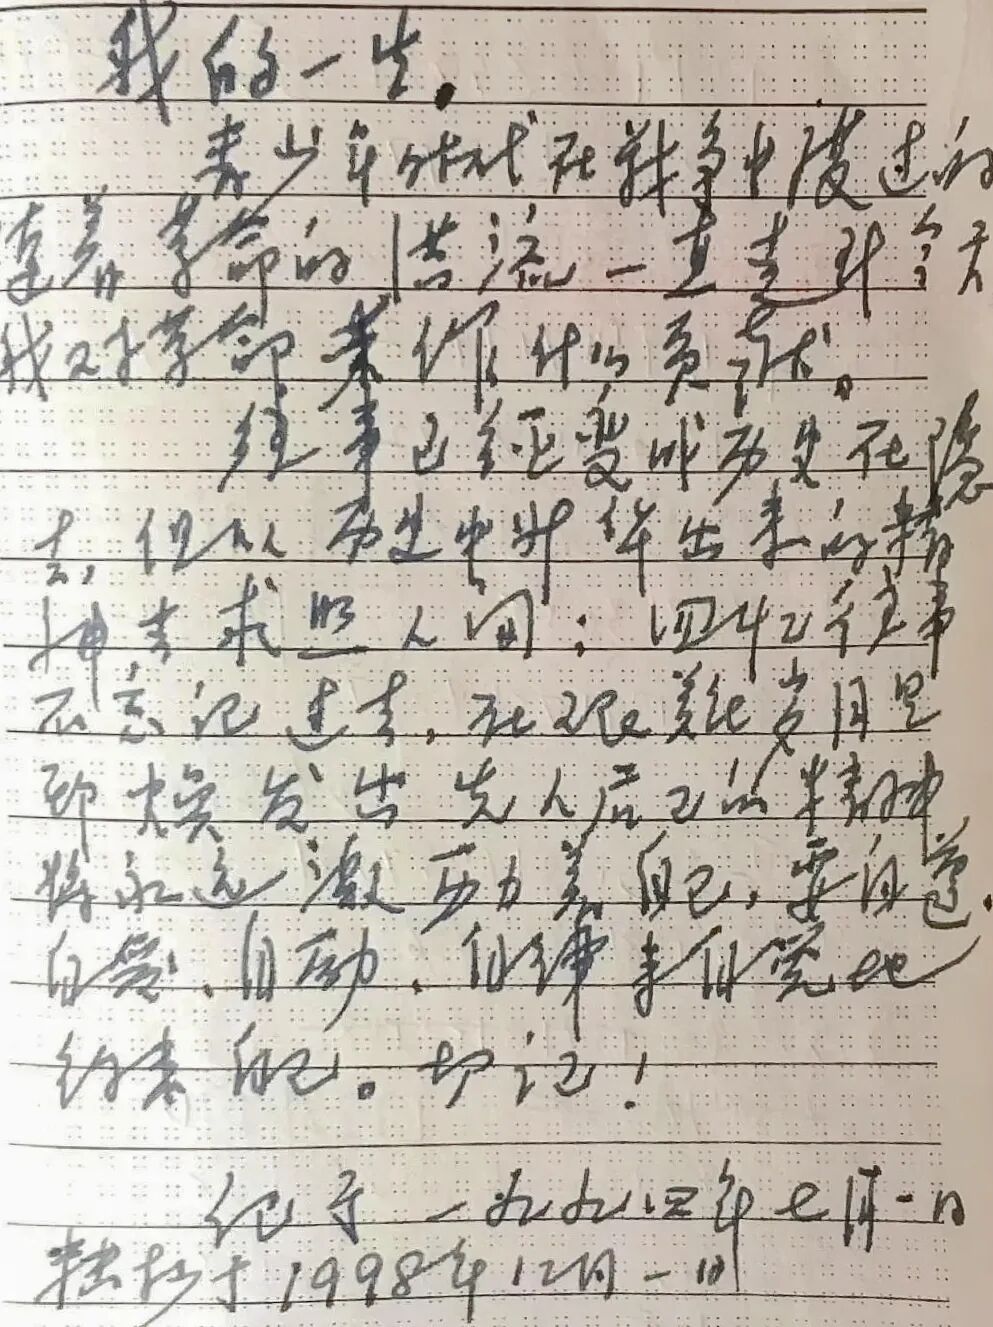 我的一生.
青少年时代在战争中度过的
随着革命的洪流一直走到今天
我对革命未作什么贡献。
往事已经变成历史在隐
去,但从历史中升华出来的精
神去永照人间:回忆往事
不忘记过去,在艰难岁月里
却焕发出先人后己的精神
将永远激励着自己,要自尊.
自爱、自励、自律来自觉地
约束自己。切记!
记于一九九四年七月一日
抄于1998年12月一日